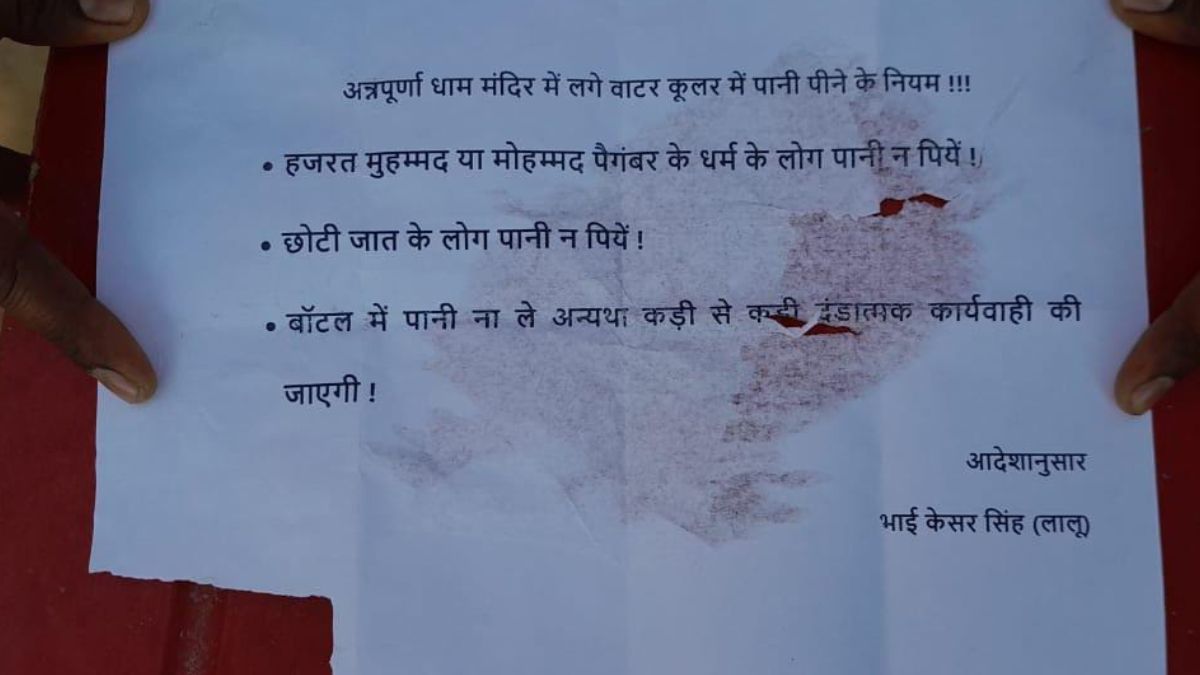 अन्नपूर्णा धाम मंदिर में लगे वाटर कूलर में पानी पीने के नियम !!!
• हजरत मुहम्मद या मोहम्मद पैगंबर के धर्म के लोग पानी न पियें !
• छोटी जात के लोग पानी न पियें !
• बॉटल में पानी ना ले अन्यथा कड़ी से कड़ी दंडात्मक कार्यवाही की
जाएगी !
आदेशानुसार
भाई केसर सिंह (लालू)